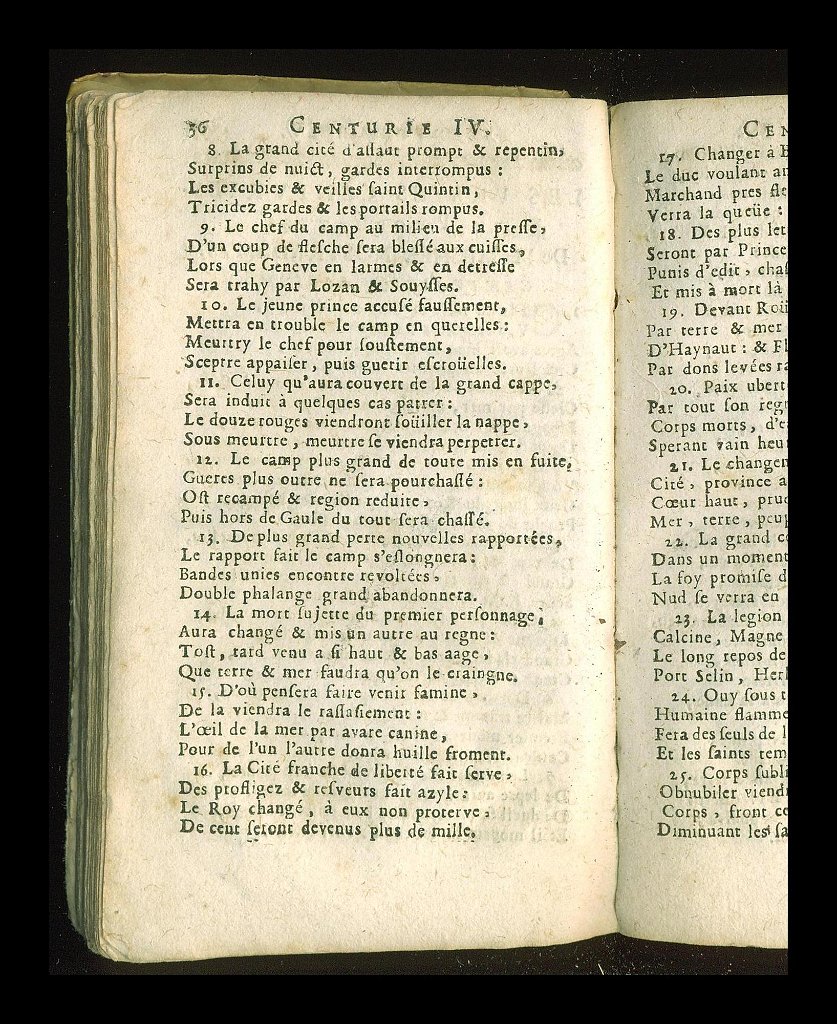 36 CENTURIE IV.
8. La grand cité d'aſſaut prompt & repentin,
Surprins de nuict, gardes interrompus :
Les excubies & veilles ſaint Quintin,
Tricidez gardes & les portails rompus.
9. Le chef du camp au milieu de la preſſe,
D'un coup de fleſche ſera bleſſé aux cuiſſes,
Lors que Geneve en larmes & en detreſſe
Sera trahy par Lozan & Souyſſes.
10. Le jeune prince accuſé fauſſement,
Mettra en trouble le camp en querelles :
Meurtry le chef pour ſouſtement,
Sceptre appaiſer, puis guerir eſcroüelles.
11. Celuy qu'aura couvert de la grand cappe,
Sera induit à quelques cas patrer :
Le douze rouges viendront ſoüiller la nappe,
Sous meurtre, meurtre ſe viendra perpetrer.
12. Le camp plus grand de toute mis en fuite,
Gueres plus outre ne ſera pourchaſſé :
Oſt recampé & region reduite,
Puis hors de Gaule du tout ſera chaſſé.
13. De plus grand perte nouvelles rapportées,
Le rapport fait le camp s'eſlongnera :
Bandes unies encontre revoltées,
Double phalange grand abandonnera.
14. La mort ſujette du premier perſonnage,
Aura changé & mis un autre au regne :
Toſt, tard venu a ſi haut & bas aage,
Que terre & mer faudra qu'on le craingne.
15. D'où penſera faire venir famine,
De la viendra le raſſaſiement :
L'œil de la mer par avare canine,
Pour de l'un l'autre donra huille froment.
16. La Cité franche de liberté fait ſerve,
Des profligez & reſveurs fait azyle :
Le Roy changé, à eux non proterve,
De cent ſeront devenus plus de mille.
CEN
17. Changer à
Le duc voulant
Marchand pres
Verra la queüe :
18. Des plus
Seront par Prince
Punis d'edit,
Et mis à mort là
19. Devant
Par terre & mer
D'Haynaut : &
Par dons levées
20. Paix
Par tout ſon
Corps morts,
Sperant vain
21. Le
Cité, province
Cœur haut,
Mer, terre,
22. La grand
Dans un moment
La foy promiſe
Nud ſe verra en
23. La legion
Calcine, Magne
Le long repos de
Port Selin,
24. Ouy ſous
Humaine flamme
Fera des ſeuls de
Et les ſaints
25. Corps
Obnubiler
Corps, front
Diminuant les